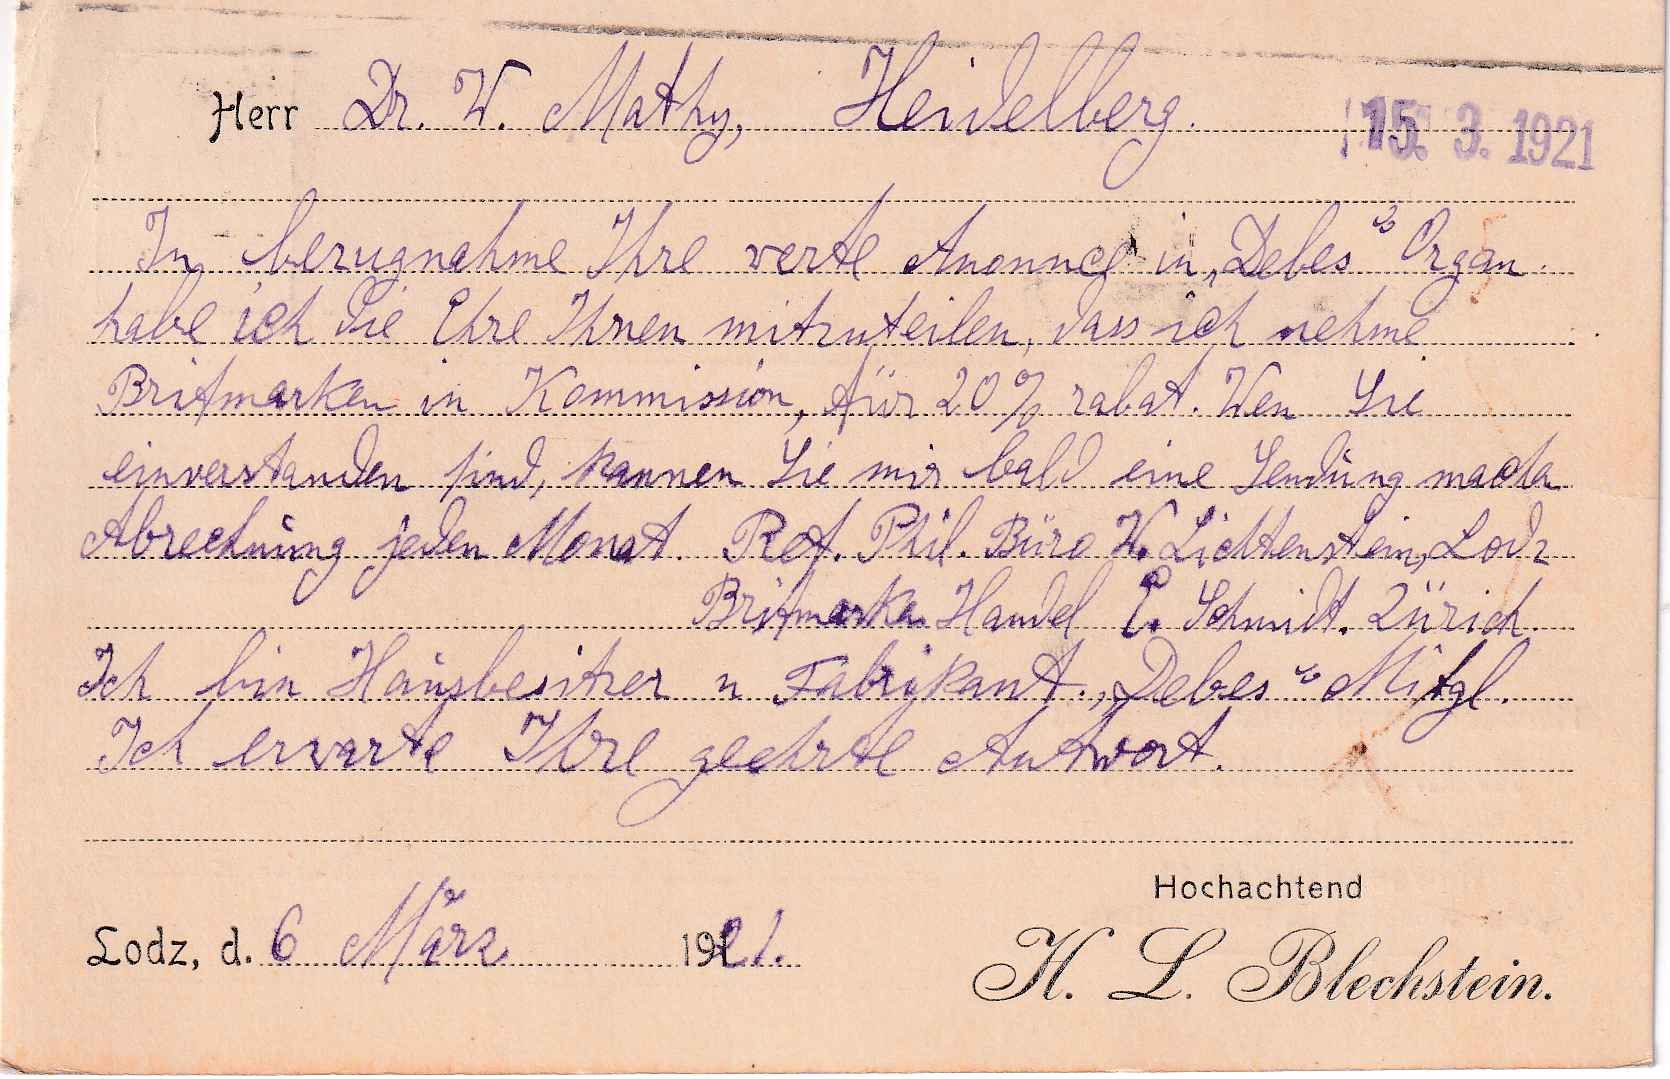 Herr Dr. W. Mathy, Heidelberg.
15. 3. 1921
In bezugnahme Ihre werte Anonnce in „Debes“ Organ
habe ich die Ehre Ihnen mitzuteilen, dass ich nehme
Brifmarken in Kommission, für 20% rabat. Wen Sie
einverstanden sind, kannen Sie mir bald eine Sendung
Abrechnung jeden Monat. Ref. Phil. Büro W. Lichtenstein, Lodz
Brifmarken Handel E. Schmidt. Zürich.
Ich bin Hausbesitzer u Fabrikant. „Debes“ Mitgl.
Ich erwarte Ihre geehrte Antwort.
Hochachtend
Lodz, d. 6 März 1921.
H. L. Blechstein.